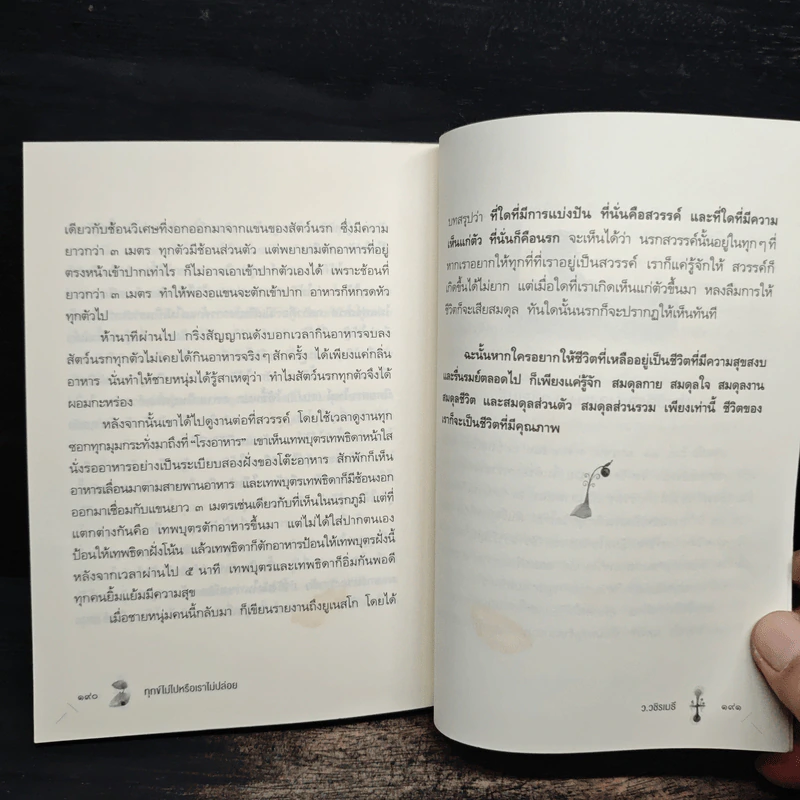 เดียวกับช้อนวิเศษที่งอกออกมาจากแขนของสัตว์นรก ซึ่งมีความ
ยาวกว่า ๓ เมตร ทุกตัวมีช้อนส่วนตัว แต่พยายามตักอาหารที่อยู่
ตรงหน้าเข้าปากเท่าไร ก็ไม่อาจเอาเข้าปากตัวเองได้ เพราะช้อนที่
ยาวกว่า ๓ เมตร ทำให้พองอแขนจะตักเข้าปาก อาหารก็หกรดหัว
ทุกตัวไป
ห้านาทีผ่านไป กริ่งสัญญาณดังบอกเวลากินอาหารจบลง
สัตว์นรกทุกตัวไม่เคยได้กินอาหารจริงๆ สักครั้ง ได้เพียงแค่กลิ่น
อาหาร นั่นทำให้ชายหนุ่มได้รู้สาเหตุว่า ทำไมสัตว์นรกทุกตัวจึงได้
ผอมกะหร่อง
หลังจากนั้นเขาได้ไปดูงานต่อที่สวรรค์ โดยใช้เวลาดูงานทุก
ซอกทุกมุมกระทั่งมาถึงที่ "โรงอาหาร" เขาเห็นเทพบุตรเทพธิดาหน้าใส
นั่งรออาหารอย่างเป็นระเบียบสองฝั่งของโต๊ะอาหาร สักพักก็เห็น
อาหารเลื่อนมาตามสายพานอาหาร และเทพบุตรเทพธิดาก็มีช้อนงอก
ออกมาเชื่อมกับแขนยาว ๓ เมตรเช่นเดียวกับที่เห็นในนรกภูมิ แต่ที่
แตกต่างกันคือ เทพบุตรตักอาหารขึ้นมา แต่ไม่ได้ใส่ปากตนเอง
ป้อนให้เทพธิดาฝั่งโน้น แล้วเทพธิดาก็ตักอาหารป้อนให้เทพบุตรฝั่งนี้
หลังจากเวลาผ่านไป ๕ นาที เทพบุตรและเทพธิดาก็อิ่มกันพอดี
ทุกคนยิ้มแย้มมีความสุข
เมื่อชายหนุ่มคนนี้กลับมา ก็เขียนรายงานถึงยูเนสโก โดยได้
๑๙๐ ทุกข์ไม่ไปหรือเราไม่ปล่อย
บทสรุปว่า ที่ใดที่มีการแบ่งปัน ที่นั่นคือสวรรค์ และที่ใดที่มีความ
เห็นแก่ตัว ที่นั่นก็คือนรก จะเห็นได้ว่า นรกสวรรค์นั้นอยู่ในทุกๆ ที่
หากเราอยากให้ทุกที่ที่เราอยู่เป็นสวรรค์ เราก็แค่รู้จักให้ สวรรค์ก็
เกิดขึ้นได้ไม่ยาก แต่เมื่อใดที่เราเกิดเห็นแก่ตัวขึ้นมา หลงลืมการให้
ชีวิตก็จะเสียสมดุล ทันใดนั้นนรกก็จะปรากฏให้เห็นทันที
ฉะนั้นหากใครอยากให้ชีวิตที่เหลืออยู่เป็นชีวิตที่มีความสุขสงบ
และรื่นรมย์ตลอดไป ก็เพียงแค่รู้จัก สมดุลกาย สมดุลใจ สมดุลงาน
สมดุลชีวิต และสมดุลส่วนตัว สมดุลส่วนรวม เพียงเท่านี้ ชีวิตของ
เราก็จะเป็นชีวิตที่มีคุณภาพ
ว.วชิรเมธี ๑๙๑